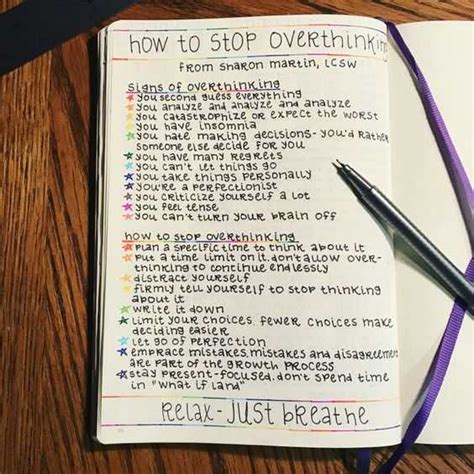 HOW TO STOP OVERTHINKING
FROM SHARON MARTIN, LCSW
SIGNS OF OVERTHINKING
YOU SECOND GUESS EVERYTHING
YOU ANALYZE AND ANALYZE AND ANALYZE
YOU CATASTROPHIZE OR EXPECT THE WORST
YOU HAVE INSOMNIA
YOU HATE MAKING DECISIONS- YOU'D RATHER
SOMEONE ELSE DECIDE FOR YOU
YOU HAVE MANY REGRETS
YOU CAN'T LET THINGS GO
YOU TAKE THINGS PERSONALLY
YOU'RE A PERFECTIONIST
YOU CRITICIZE YOURSELF A LOT
YOU FEEL TENSE
YOU CAN'T TURN YOUR BRAIN OFF
HOW TO STOP OVERTHINKING
PLAN A SPECIFIC TIME TO THINK ABOUT IT
PUT A TIME LIMIT ON IT. DON'T ALLOW OVER-
THINKING TO CONTINUE ENDLESSLY
DISTRACT YOURSELF
FIRMLY TELL YOURSELF TO STOP THINKING
ABOUT IT
WRITE IT DOWN
LIMIT YOUR CHOICES. FEWER CHOICES MAKE
DECIDING EASIER
LET GO OF PERFECTION
EMBRACE MISTAKES. MISTAKES AND DISAGREEMENT
ARE PART OF THE GROWTH PROCESS
STAY PRESENT-FOCUSED. DON'T SPEND TIME
IN "WHAT IF LAND"
RELAX - JUST BREATHE